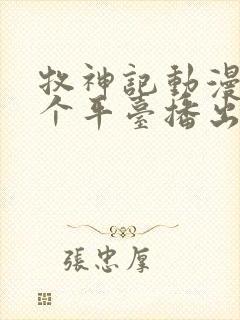 牧神記動漫
个平臺播出
張忠厚